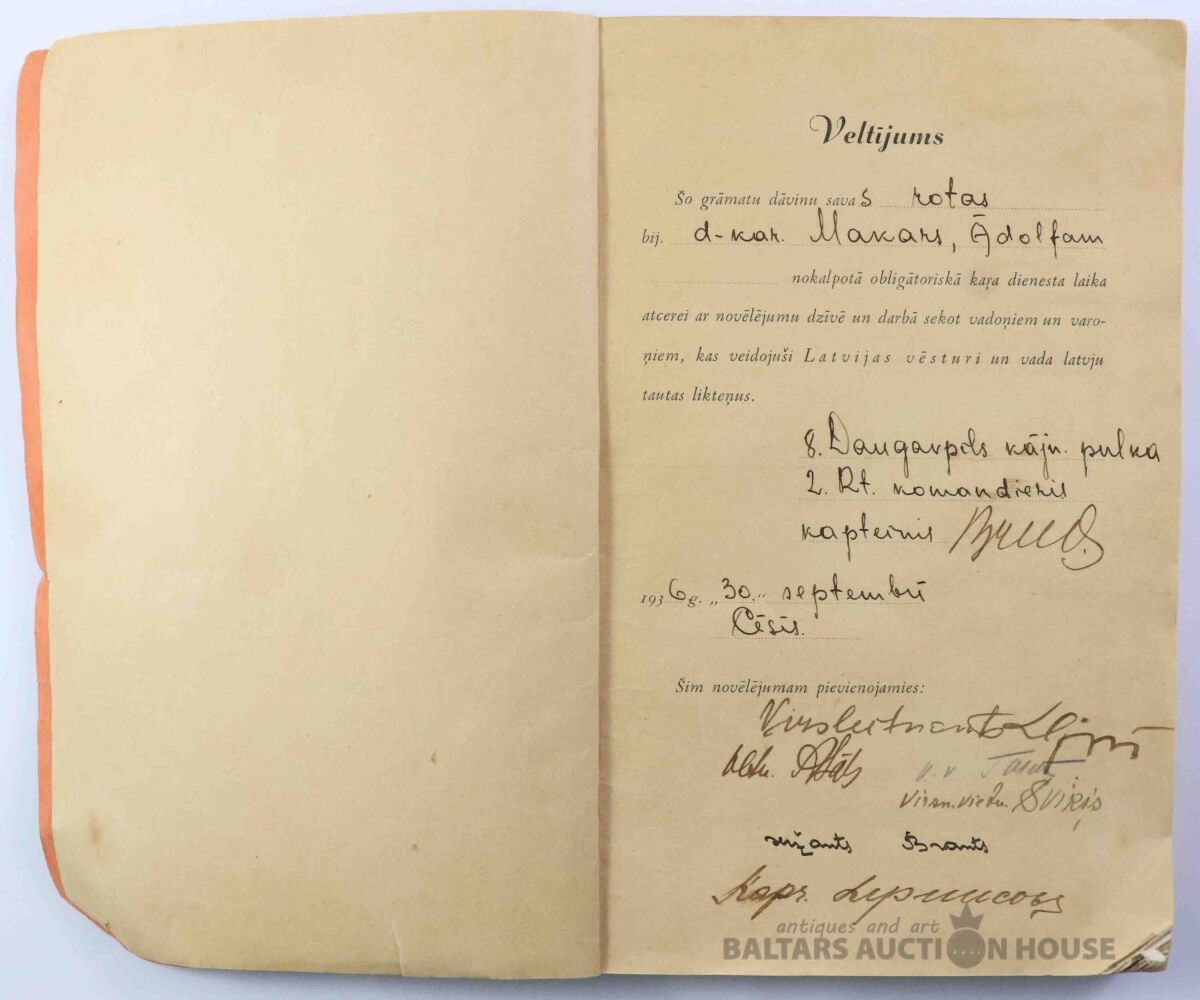 Veltījums
Šo grāmatu dāvinu savas rotas
bij. d-kar. Makars, Ādolfam
nokalpotā obligātoriskā kaŗa dienesta laika
atcerei ar novēlējumu dzīvē un darbā sekot vadoņiem un varo-
ņiem, kas veidojuši Latvijas vēsturi un vada latvju
tautas likteņus.
8. Daugavpils kājn. pulka
2. Rt. komandieris
kapteinis
1936 g. „30.“ septembrī
Cēsīs.
Šim novēlējumam pievienojamies:
Virsleitnants
v.v.
virsn. vietn. Sviķis
seržants Brants
Kapr.
antiques and art
BALTARS AUCTION HOUSE